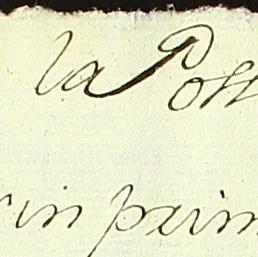 la Poss
in prim